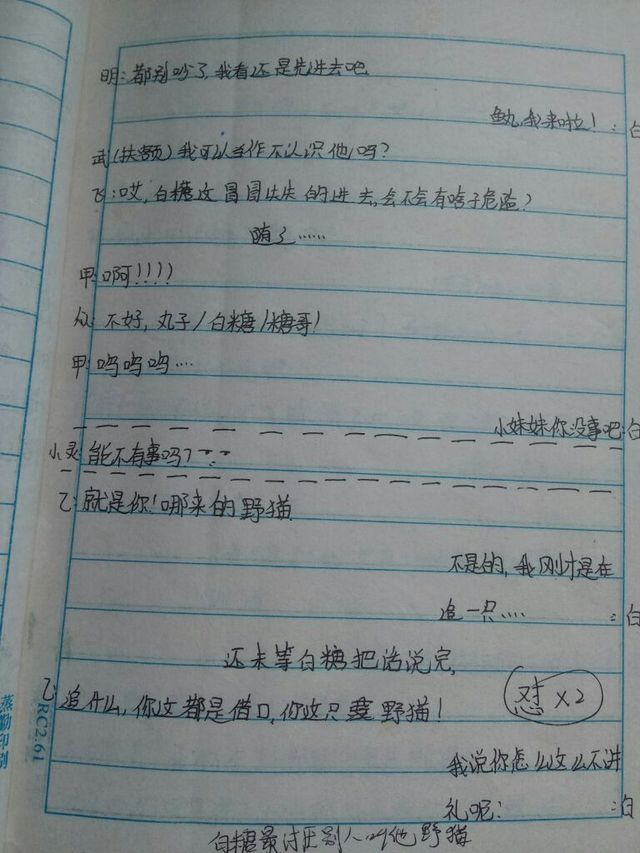 明:都别吵了,我看还是先进去吧
鱼丸,我来啦!:白
武(扶额)我可以当作不认识他吗?
飞:哎,白糖这冒冒失失的进去,会不会有啥子危险?
随了……
甲:啊!!!!
众:不好,丸子/白糖/糖哥!
甲:呜呜呜…
小妹妹你没事吧:白
小灵:能不有事吗?
乙:就是你!哪来的野猫
不是的,我刚才是在
追一只….:白
还未等白糖把话说完,
乙:追什么,你这都是借口,你这只臭野猫!
怼×2
我说你怎么这么不讲
礼呢::白
白糖最讨厌别人叫他野猫
RC2.61